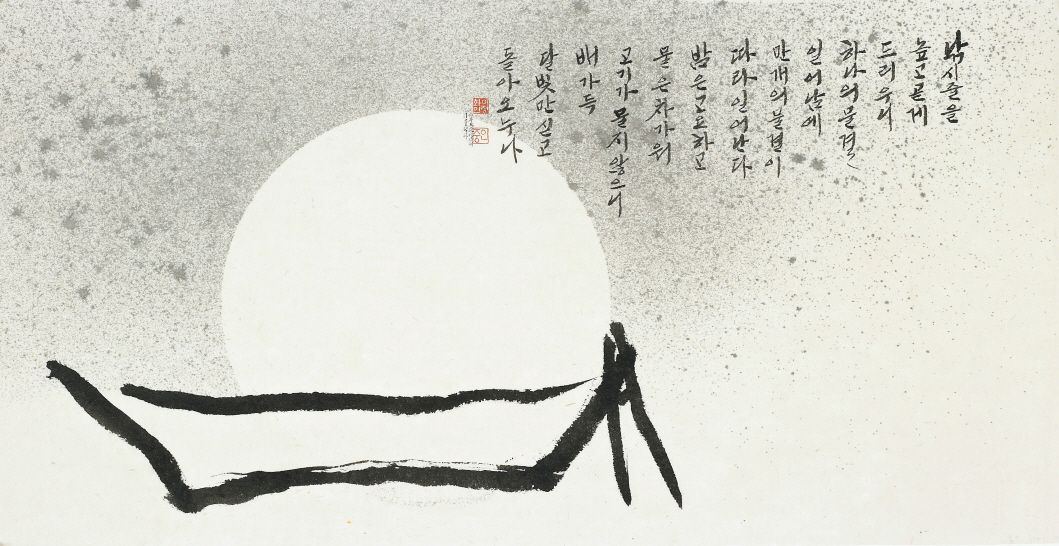 낚시줄을
높고 곧게
드리우니
하나의 물결
일어남에
만개의 물결이
따라 일어난다
밤은 고요하고
물은 차가워
고기가 물지 않으니
배 가득
달빛만 싣고
돌아오누나